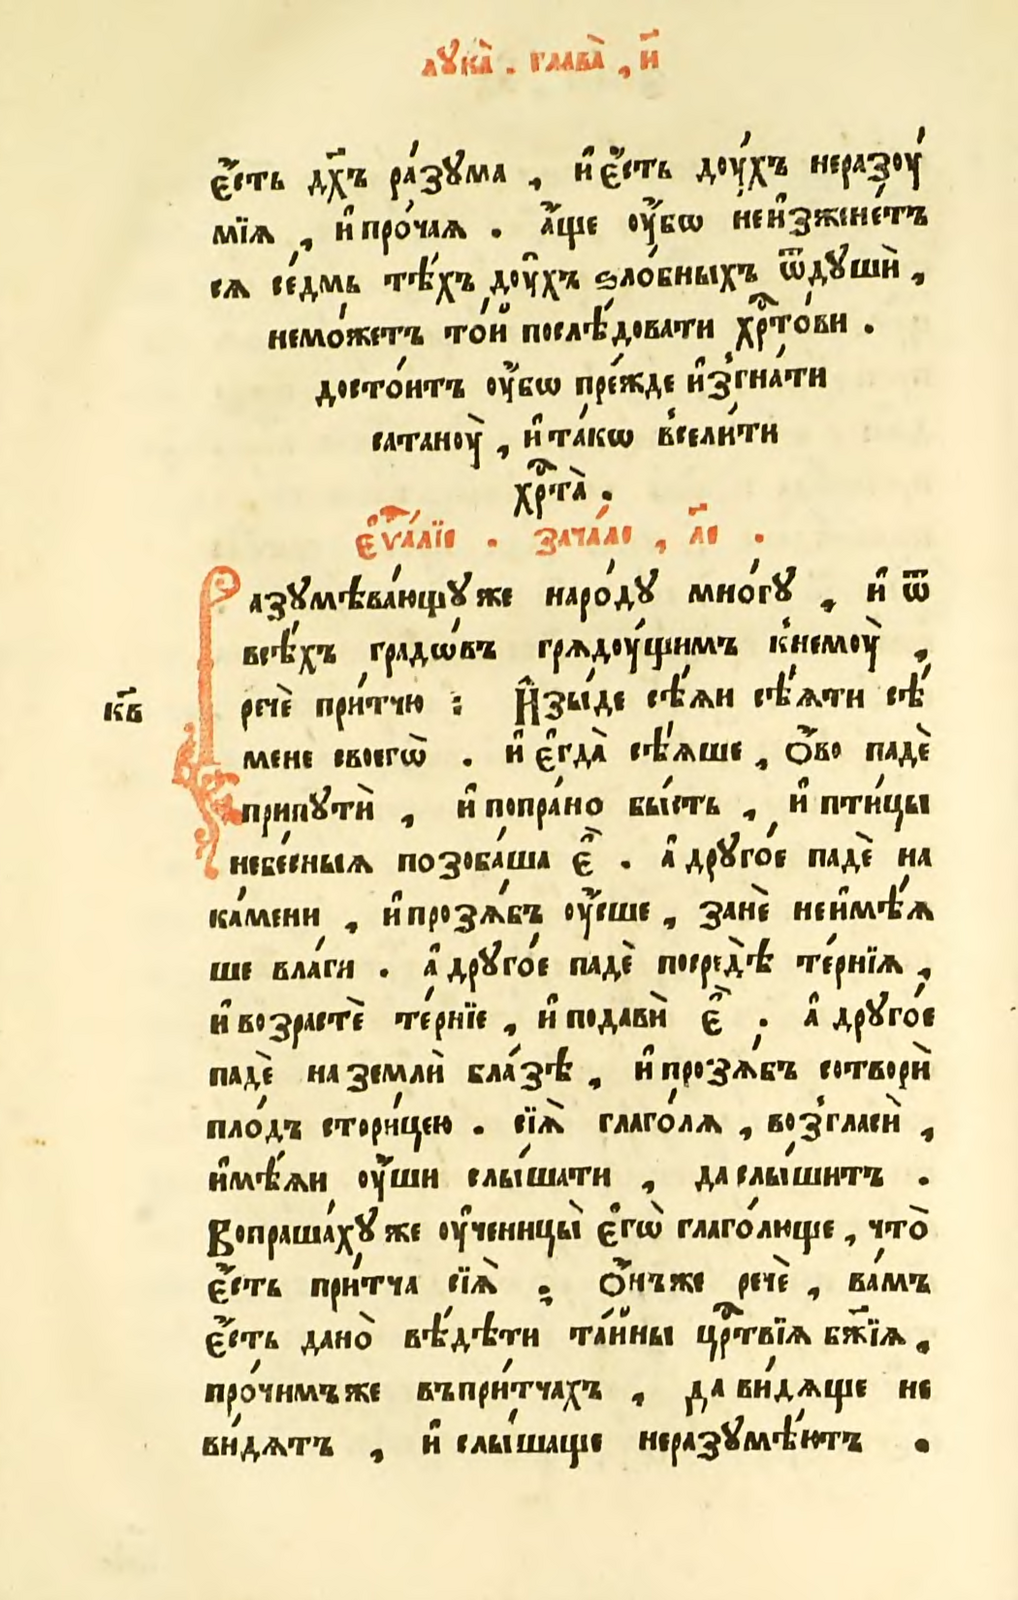 лꙋка̀ . глава̀ , и҃
є҆́сть дх҃ъ ра́зꙋма , и҆ є҆́сть доу́хъ неразоу́
мїѧ , и҆ про́чаѧ . а҆́ще оу҆́бѡ неи҆зжене́тъ
сѧ се́дмь тѣ́хъ доу҆хъ ѕло́бныхъ ѿдꙋшѝ ,
немо́жетъ то́й послѣ́довати хрⷭ҇то́ви .
досто́итъ оу҆́бѡ пре́жде и҆згна́ти
сатаноу̀ , и҆ та́кѡ всели́ти
хрⷭ҇та̀ .
є҆ѵⷢ҇а́лїе . зача́ло , л҃е .
Разꙋмѣва́ющꙋ же наро́дꙋ мно́гꙋ , и҆ ѿ
всѣ́хъ градѡ́въ грѧдоу́щимъ кнемоу̀ ,
речѐ при́тчю : И҆зы́де сѣ́ѧи сѣ́ѧти сѣ́
кв҃
мене своегѡ̀ . и҆ є҆гда̀ сѣ́ѧше , Ѻ҆́во падѐ
припꙋтѝ , и҆ попра́но бы́сть , и҆ пти́цы
небе́сныѧ позоба́ша є҆̀ . а҆ дрꙋго́е падѐ на
ка́мени , и҆ прозѧ́бъ оу҆́сше , занѐ неи҆мѣ́ѧ
ше вла́ги . а҆ дрꙋго́е падѐ посредѣ̀ те́рнїѧ ,
и҆ возрастѐ те́рнїе , и҆ подавѝ є҆̀ . а҆ дрꙋго́е
падѐ на землѝ бла́зѣ , и҆ прозѧ́бъ сотворѝ
пло́дъ стори́цею . сїѧ̀ глаго́лѧ , возгласѝ ,
и҆мѣ́ѧи оу҆́ши слы́шати , да слы́шитъ .
Вопраша́хꙋ же оу҆ченицы̀ є҆гѡ̀ глаго́люще , что̀
є҆́сть при́тча сїѧ̀ ; Ѻ҆́нъже речѐ , ва́мъ
є҆́сть дано̀ вѣ́дѣти та́йны црⷭ҇твїѧ бж҃їѧ ,
про́чимъже въпри́тчахъ , да ви́дѧще не
ви́дѧтъ , и҆ слы́шаще неразꙋмѣ́ютъ .